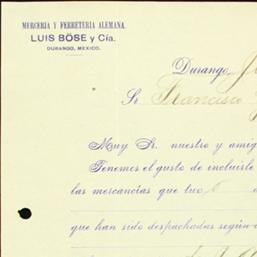 MERCERIA Y FERRETERIA ALEMANA.
LUIS BÖSE y Cía.
DURANGO, MEXICO.
Durango,
Sr Francisco
Muy Sr. nuestro y amig
Tenemos el gusto de incluirle
las mercancias que tuv
que han sido despachadas según